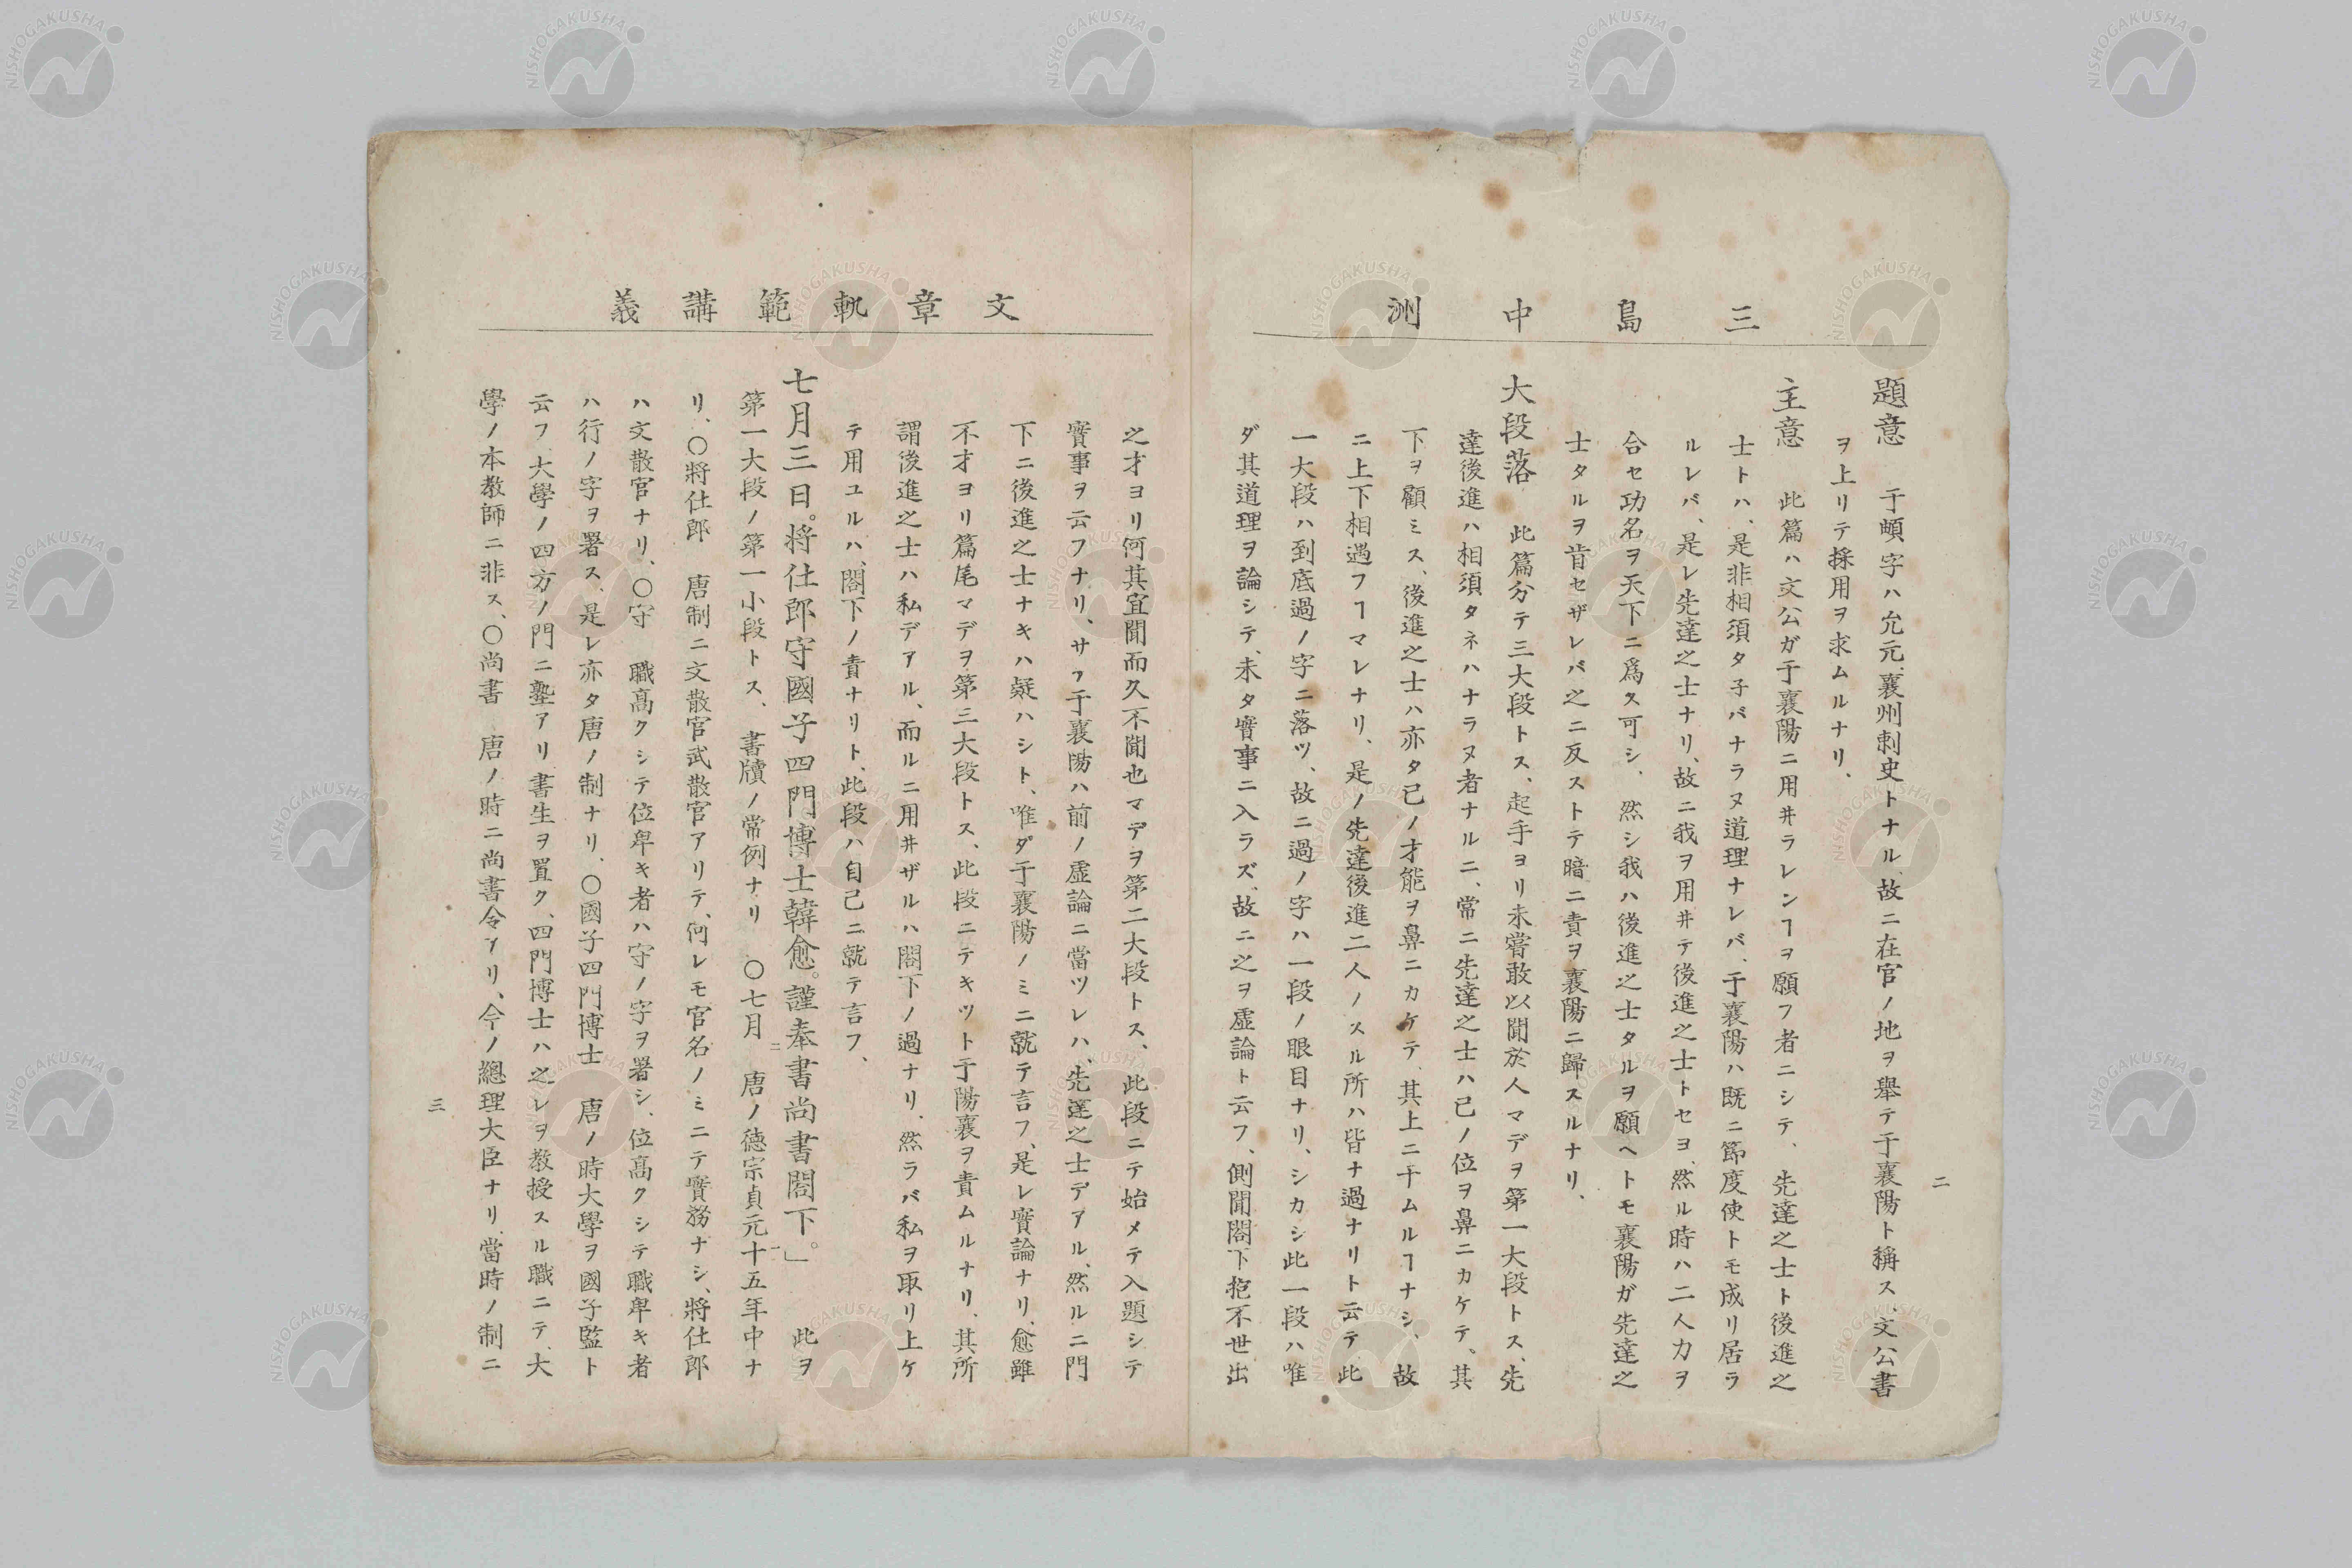 三島中洲
二
題意 于頔字ハ允元、襄州刺史トナル、故ニ在官ノ地ヲ舉テ于襄陽ト稱ス、文公書
ヲ上リテ採用ヲ求ムルナリ、
主意 此篇ハ文公ガ于襄陽ニ用井ラレンヿヲ願フ者ニシテ、先達之士ト後進之
士トハ、是非相須タ子バナラヌ道理ナレバ、于襄陽ハ既ニ節度使トモ成リ居ラ
ルレバ、是レ先達之士ナリ、故ニ我ヲ用井テ後進之士トセヨ、然ル時ハ二人力ヲ
合セ功名ヲ天下ニ爲ス可シ、然シ我ハ後進之士タルヲ願ヘトモ襄陽ガ先達之
士タルヲ肯セザレバ之ニ反ストテ暗ニ責ヲ襄陽ニ歸スルナリ、
大段落 此篇分テ三大段トス、起手ヨリ未嘗敢以聞於人マデヲ第一大段トス、先
達後進ハ相須タネハナラヌ者ナルニ、常ニ先達之士ハ己ノ位ヲ鼻ニカケテ、其
下ヲ顧ミス、後進之士ハ亦タ己ノ才能ヲ鼻ニカケテ、其上ニ干ムルヿナシ、故
ニ上下相遇フヿマレナリ、是ノ先達後進二人ノスル所ハ皆ナ過ナリト云テ此
一大段ハ到底過ノ字ニ落ツ、故ニ過ノ字ハ一段ノ眼目ナリ、シカシ此一段ハ唯
ダ其道理ヲ論シテ、未タ實事ニ入ラズ、故ニ之ヲ虛論ト云フ、側聞閤下抱不世出
文章軌範講義
之才ヨリ何其宜聞而久不聞也マデヲ第二大段トス、此段ニテ始メテ入題シテ
實事ヲ云フナリ、サフ于襄陽ハ前ノ虛論ニ當ツレハ、先達之士デアル、然ルニ門
下ニ後進之士ナキハ疑ハシト、唯ダ于襄陽ノミニ就テ言フ、是レ實論ナリ、愈雖
不才ヨリ篇尾マデヲ第三大段トス、此段ニテキツト于陽襄ヲ責ムルナリ、其所
謂後進之士ハ私デアル、而ルニ用井ザルハ閤下ノ過ナリ、然ラバ私ヲ取リ上ケ
テ用ユルハ、閤下ノ責ナリト、此段ハ自己ニ就テ言フ、
七月三日。將仕郎守國子四門博士韓愈。謹奉書尚書閤下。」 此ヲ
第一大段ノ第一小段トス、書牘ノ常例ナリ ○七月 唐ノ德宗貞元十五年中ナ
リ、○將仕郎 唐制ニ文散官武散官アリテ、何レモ官名ノミニテ實務ナシ、將仕郎
ハ文散官ナリ、○守 職高クシテ位卑キ者ハ守ノ字ヲ署シ、位高クシテ職卑キ者
ハ行ノ字ヲ署ス、是レ亦タ唐ノ制ナリ、○國子四門博士 唐ノ時大學ヲ國子監ト
云フ、大學ノ四方ノ門ニ塾アリ書生ヲ置ク、四門博士ハ之レヲ教授スル職ニテ、大
學ノ本教師ニ非ス、○尚書 唐ノ時ニ尚書令アリ、今ノ總理大臣ナリ、當時ノ制ニ
三